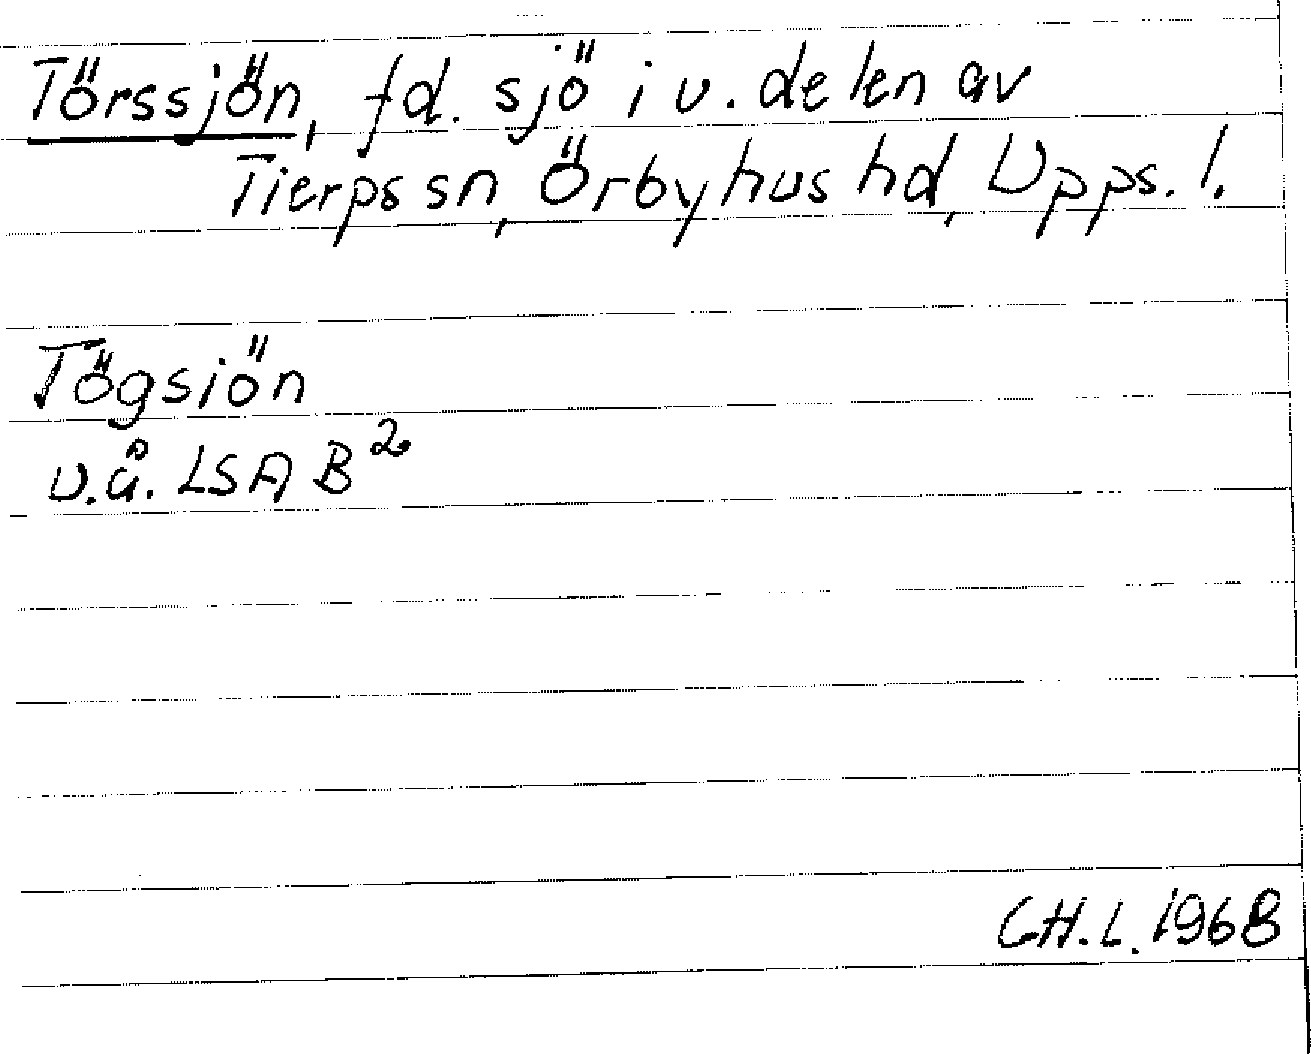 Törssjön, fd. sjö i v. delen av
Tierps sn, Örbyhus hd, Upps. l.
Tögsiön
u.å. LSA B²
G.H.L. 1968